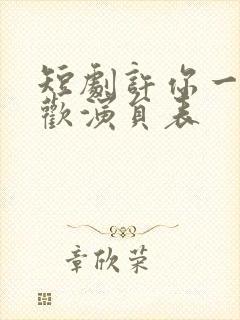 短劇許你一
歡演員表
章欣荣